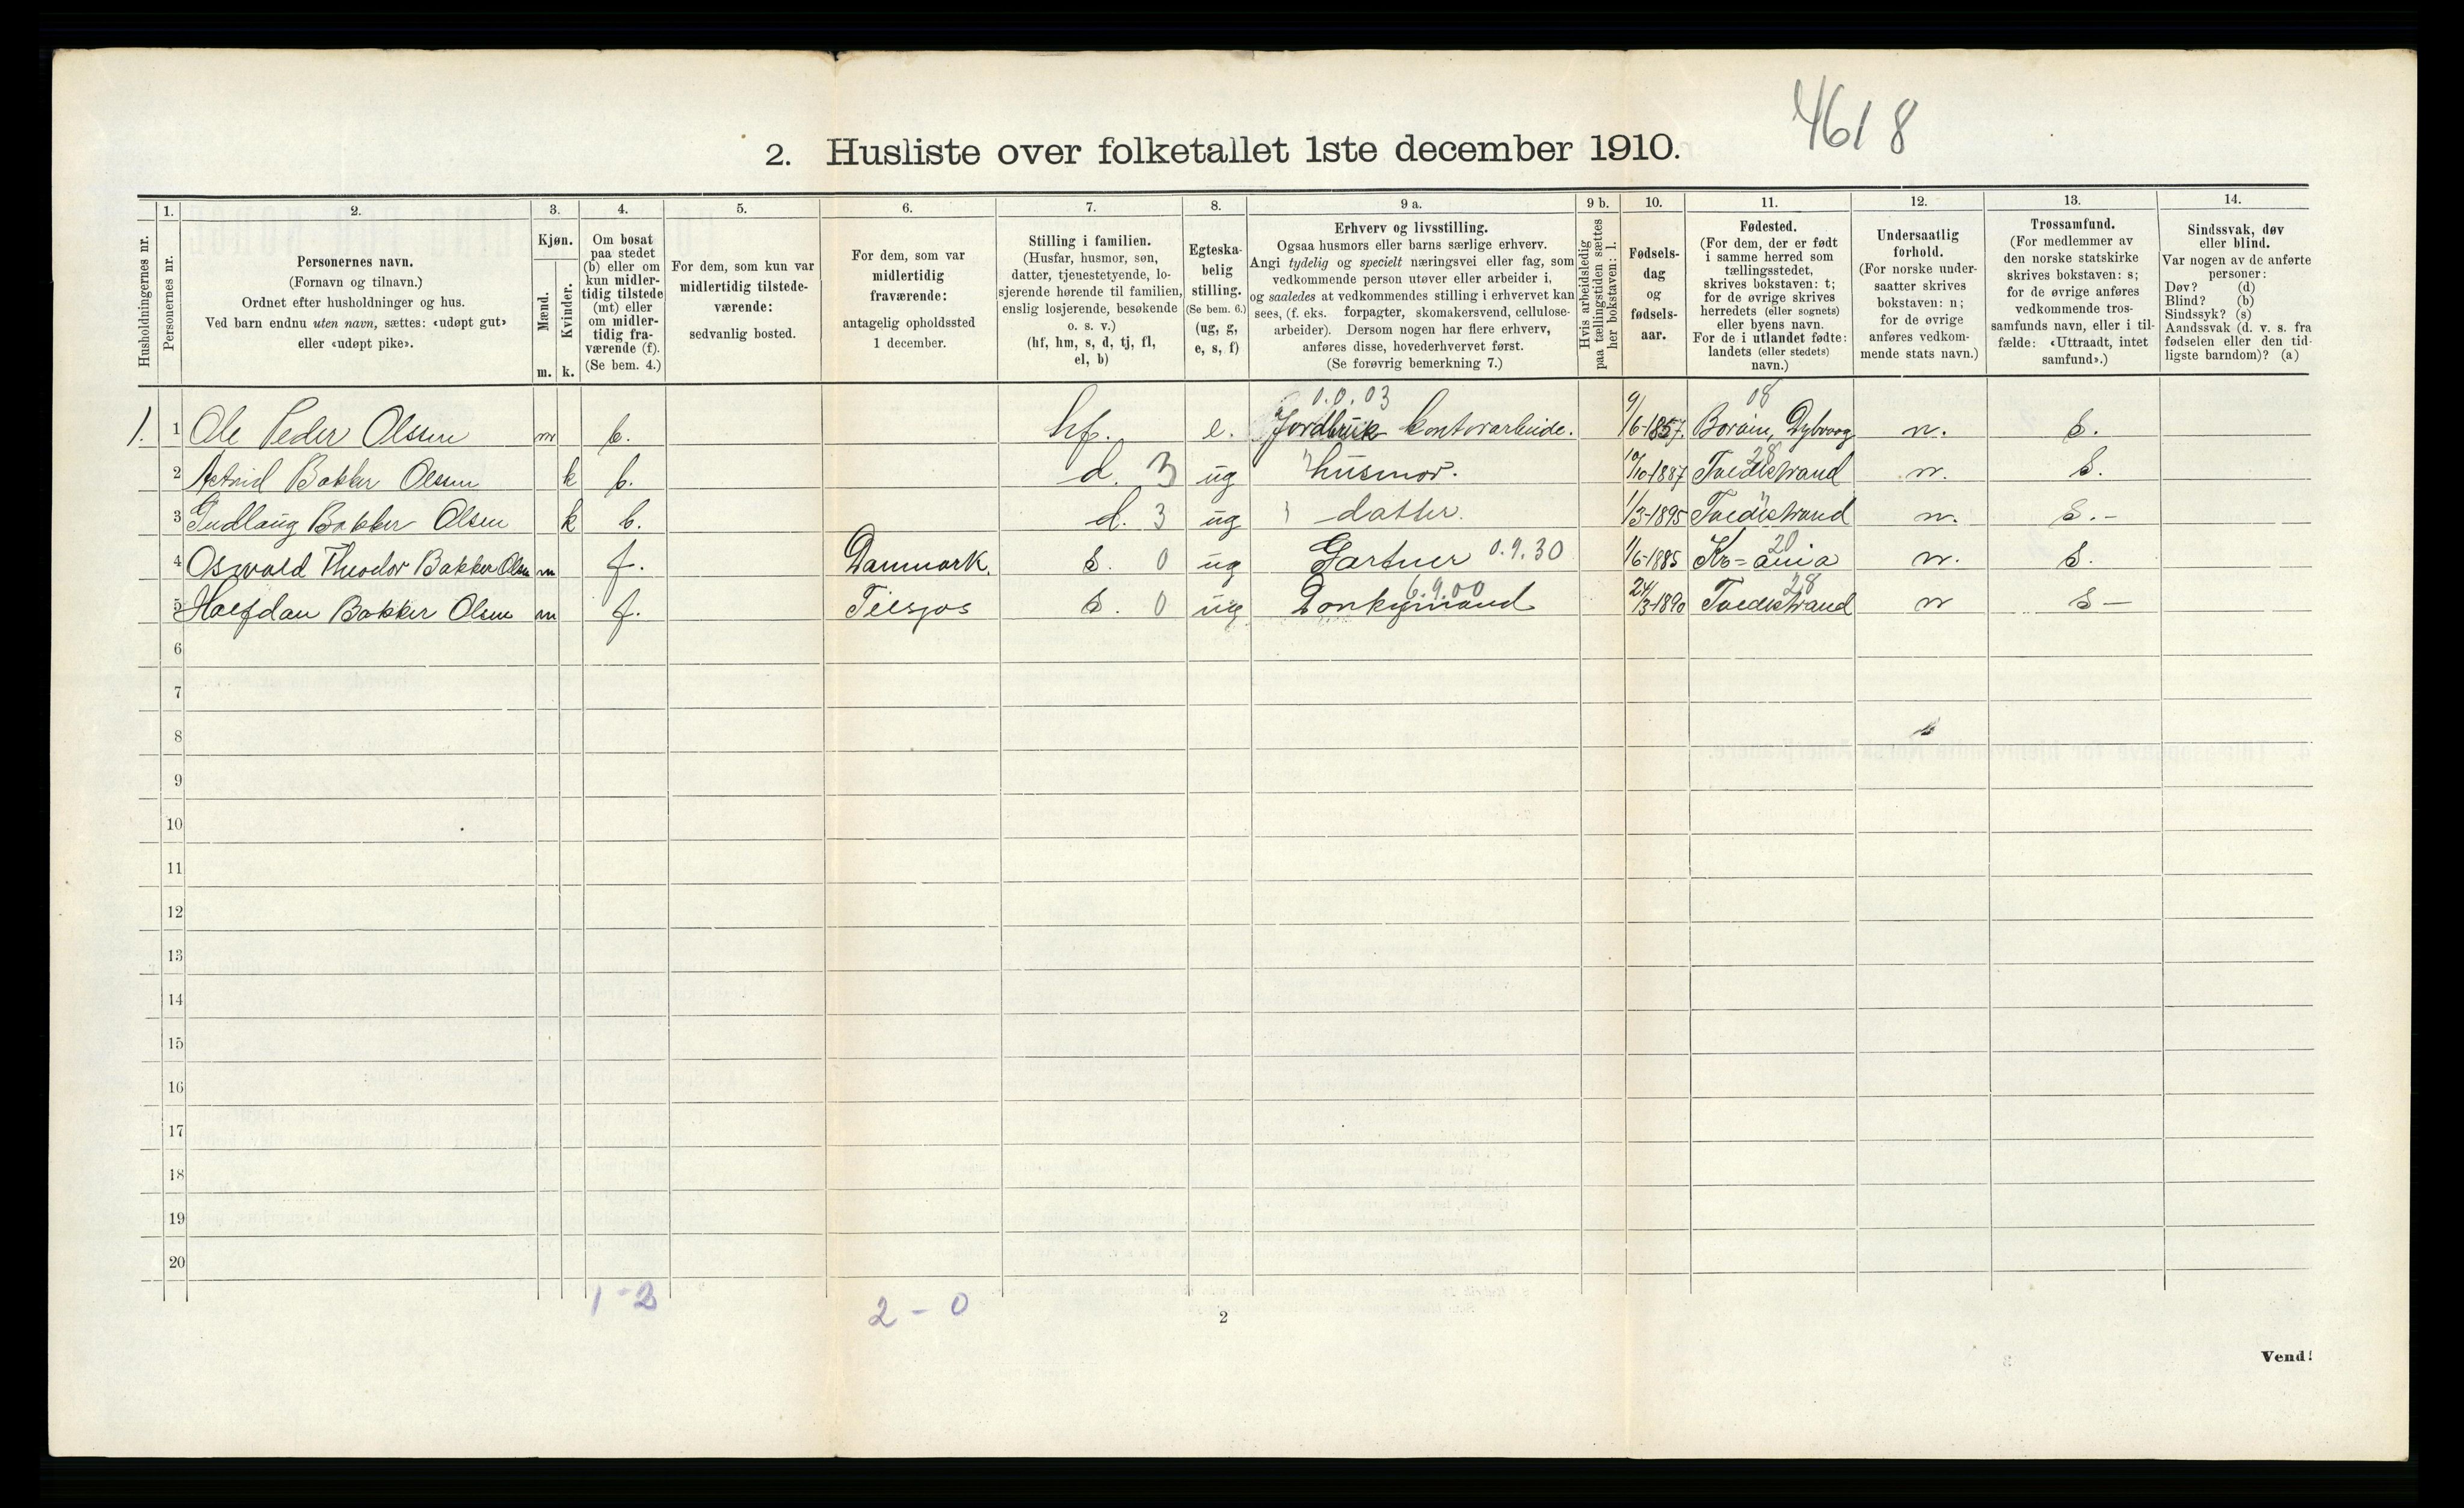 4618
2. Husliste over folketallet 1ste december 1910.
Husholdningernes nr.
1.
Personernes nr.
2.
Personernes navn.
(Fornavn og tilnavn.)
Ordnet efter husholdninger og hus.
Ved barn endnu uten navn, sættes: «udøpt gut»
eller «udøpt pike».
3.
Kjøn.
Mænd.
Kvinder.
m. k.
4.
Om bosat
paa stedet
(b) eller om
kun midler-
tidig tilstede
(mt) eller
om midler-
tidig fra-
værende (f).
(Se bem. 4.)
5.
For dem, som kun var
midlertidig tilstede-
værende:
sedvanlig bosted.
6.
For dem, som var
midlertidig
fraværende:
antagelig opholdssted
1 december.
7.
Stilling i familien.
(Husfar, husmor, søn,
datter, tjenestetyende, lo-
sjerende hørende til familien,
enslig losjerende, besøkende
o. s. v.)
(hf, hm, s, d, tj, fl,
el, b)
8.
Egteska-
belig
stilling.
(Se bem. 6.)
(ug, g,
e, s, f)
9 a.
Erhverv og livsstilling.
Ogsaa husmors eller barns særlige erhverv.
Angi tydelig og specielt næringsvei eller fag, som
vedkommende person utøver eller arbeider i,
og saaledes at vedkommendes stilling i erhvervet kan
sees, (f. eks. forpagter, skomakersvend, cellulose-
arbeider). Dersom nogen har flere erhverv,
anføres disse, hovederhvervet først.
(Se forøvrig bemerkning 7.)
9 b.
Hvis arbeidsledig
paa tællingstiden sættes
her bokstaven: l.
10.
Fødsels-
dag
og
fødsels-
aar.
11.
Fødested.
(For dem, der er født
i samme herred som
tællingsstedet,
skrives bokstaven: t;
for de øvrige skrives
herredets (eller sognets)
eller byens navn.
For de i utlandet fødte:
landets (eller stedets)
navn.)
12.
Undersaatlig
forhold.
(For norske under-
saatter skrives
bokstaven: n;
for de øvrige
anføres vedkom-
mende stats navn.)
13.
Trossamfund.
(For medlemmer av
den norske statskirke
skrives bokstaven: s;
for de øvrige anføres
vedkommende tros-
samfunds navn, eller i til-
fælde: «Uttraadt, intet
samfund».)
14.
Sindssvak, døv
eller blind.
Var nogen av de anførte
personer:
Døv? (d)
Blind? (b)
Sindssyk? (s)
Aandssvak (d. v. s. fra
fødselen eller den tid-
ligste barndom)? (a)
0.0.03 08
1. 1 Ole Peder Olsen m b. hf. e. Jordbruk kontorarbeide. 9/6-1857. Borøin, Dybvaag n. s.
28
2 Astrid Bakker Olsen k b. d. 3 ug husmor. 10/10-1887 Tvedestrand n. s.
3 Gudlaug Bakker Olsen k b. d. 3 ug datter. 1/3-1895 Tvedestrand n. s.-
4 Oswald Theodor Bakker Olsen m f. Danmark. s. 0 ug Gartner 0.9.30 1/6-1885 Kr=ania 20 n. s.
6.9.00 28
5 Halfdan Bakker Olsen m f. Tilsjøs s. 0 ug Donkymand 24/3-1890 Tvedestrand n s-
6
7
8
9
10
11
12
13
14
15
16
17
18
19
20
1-2
2-0
2
Vend!